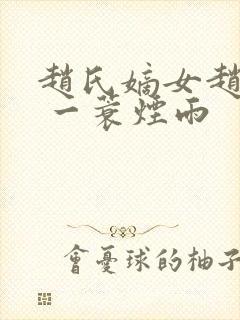 趙氏嫡女趙
一蓑煙雨
會憂球的柚子